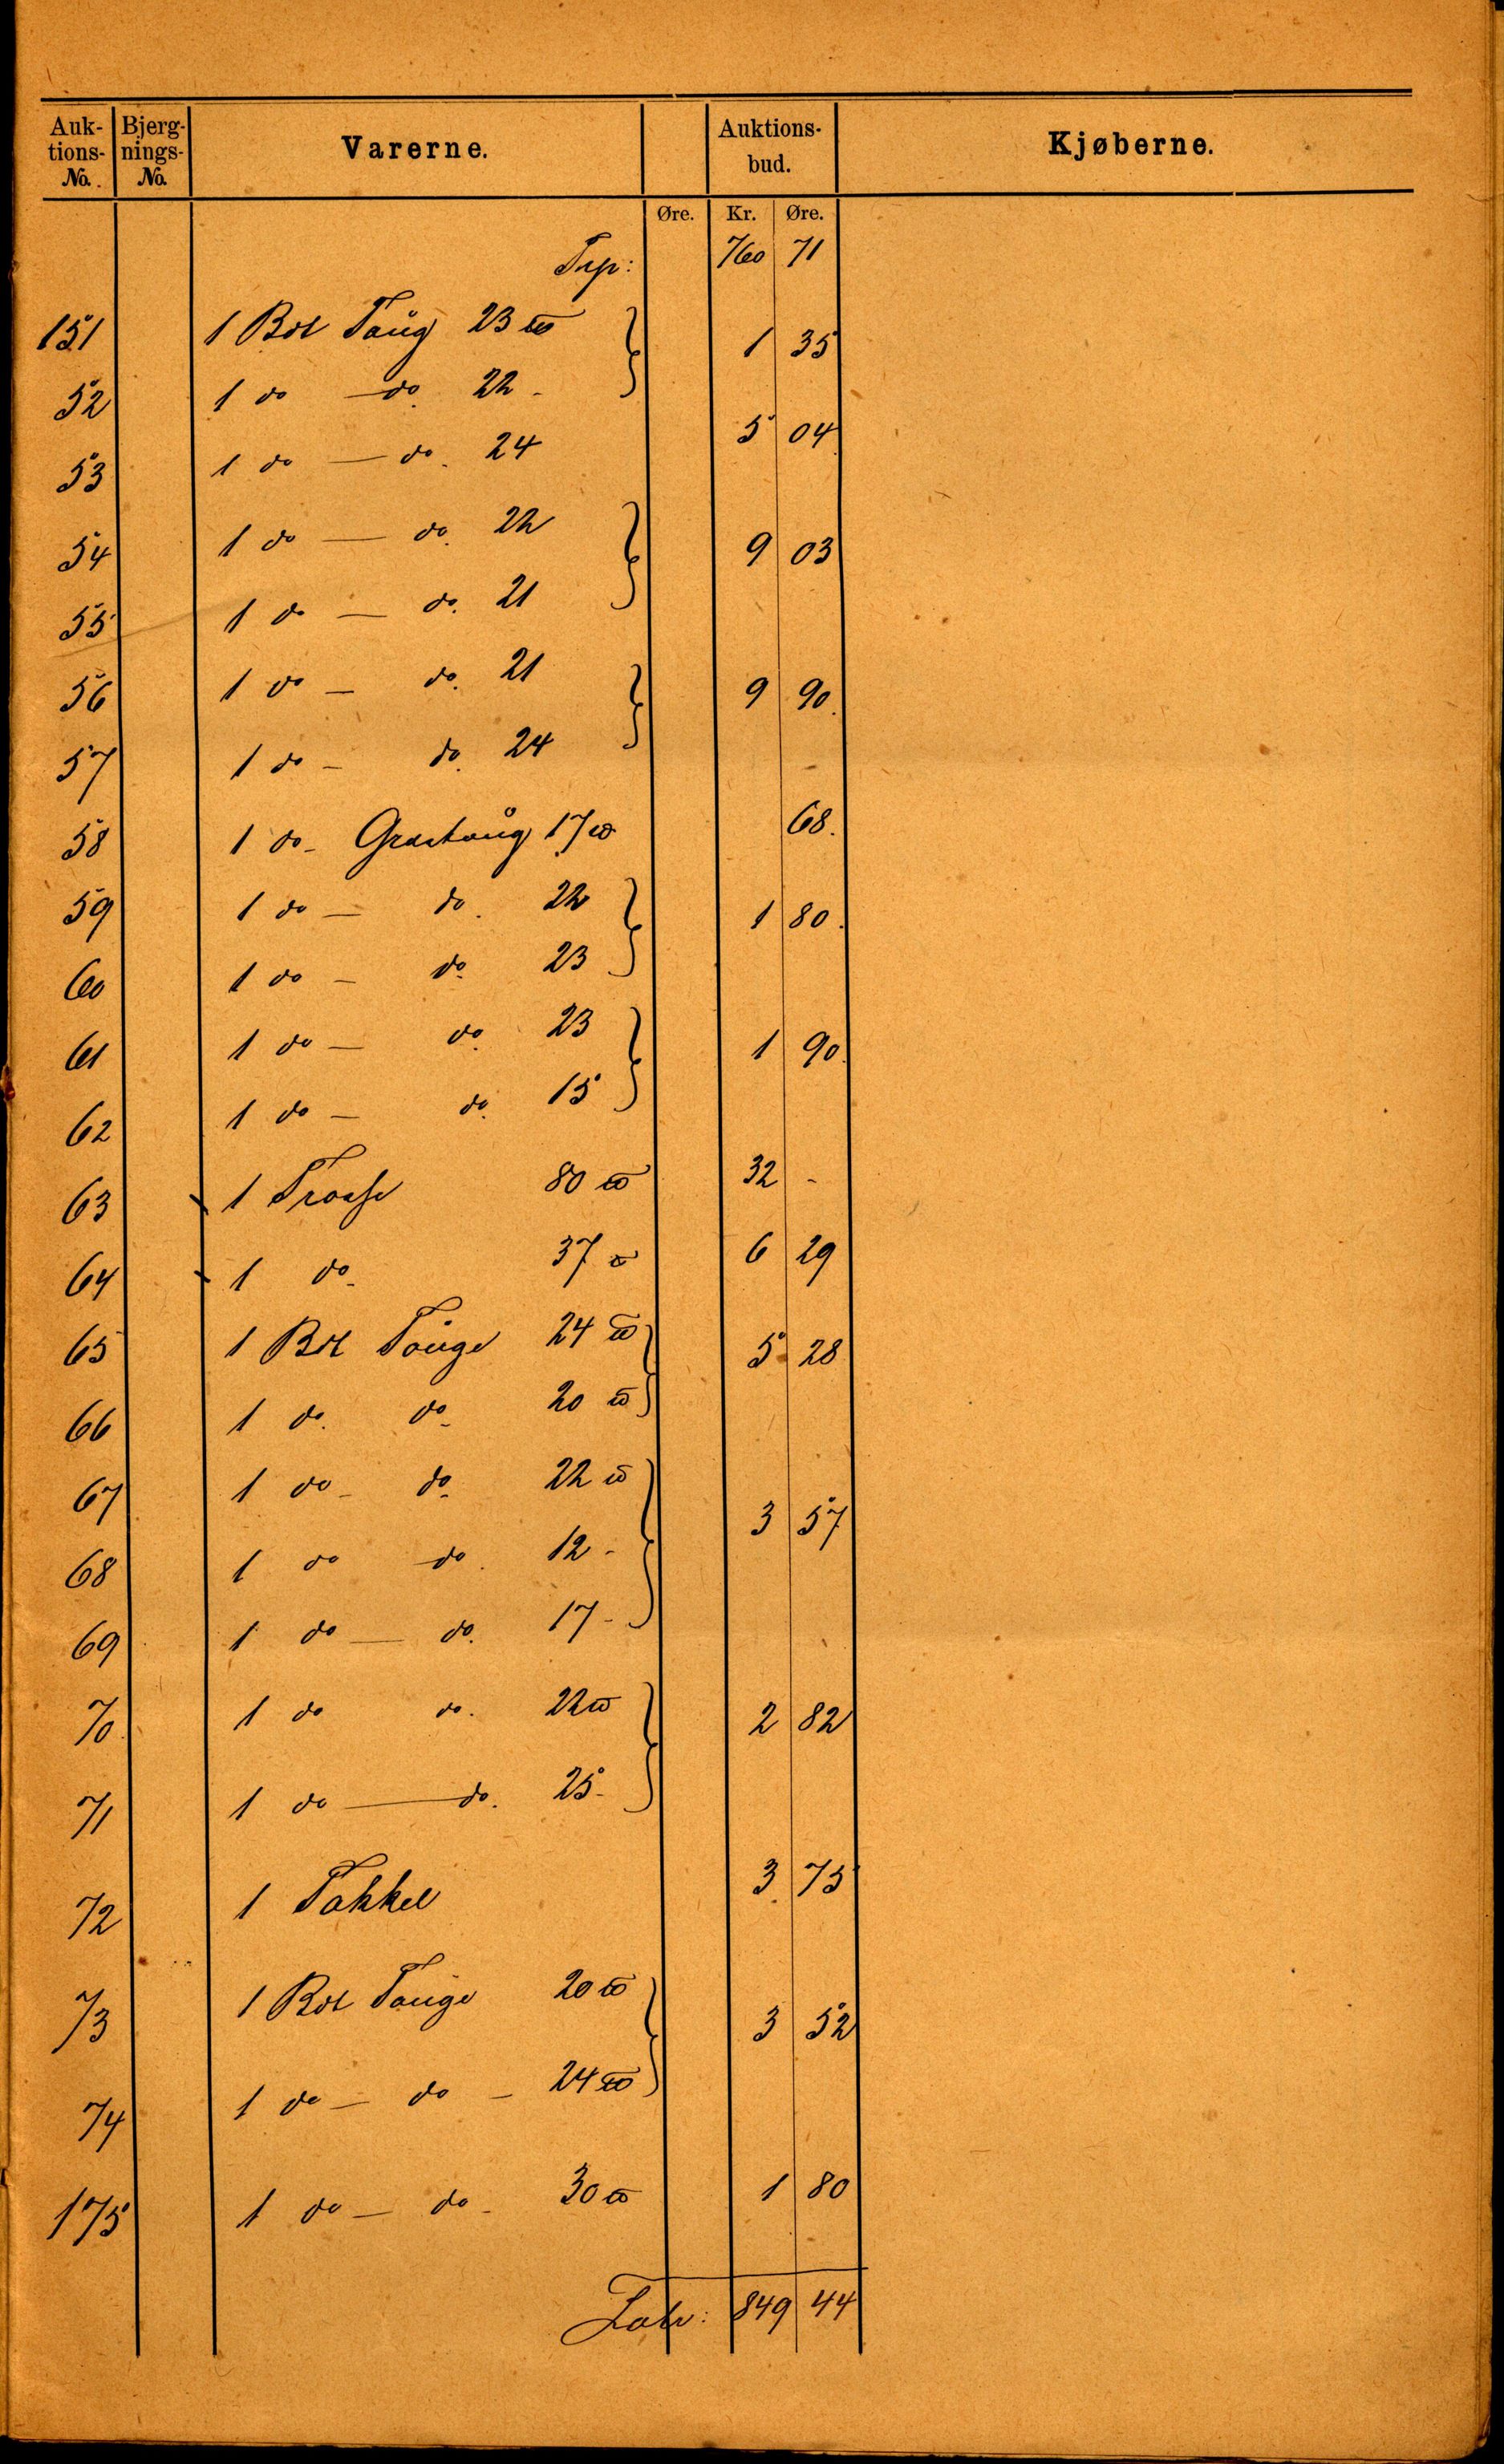 Auk- Bjerg- Varerne. Auktions- Kjøberne.
tions- nings- bud.
No. No.
Øre. Kr. Øre.
Trp: 760 71
151 1 Bdt Taug 23 ℔ 1 35
52 1 do — do. 22 -
53 1 do — do. 24 5 04
54 1 do — do. 22 9 03
55 1 do — do. 21
56 1 do — do. 21 9 90.
57 1 do — do. 24
58 1 do - Græstaug 17 ℔ 68.
59 1 do — do. 22 1 80.
60 1 do — do. 23
61 1 do — do. 23 1 90.
62 1 do — do. 15
63 1 Trosse 80 ℔ 32 -
64 1 do. 37 ℔ 6 29
65 1 Bdt Touge 24 ℔ 5 28
66 1 do. do. 20 ℔
67 1 do - do. 22 ℔
68 1 do do. 12 - 3 57
69 1 do — do. 17 -
70 1 do do. 22 ℔ 2 82
71 1 do — do. 25 -
72 1 Takkel 3 75
73 1 Bdt Touge 20 ℔ 3 52
74 1 do — do — 24 ℔
175 1 do — do - 30 ℔ 1 80
Latr: 849 44